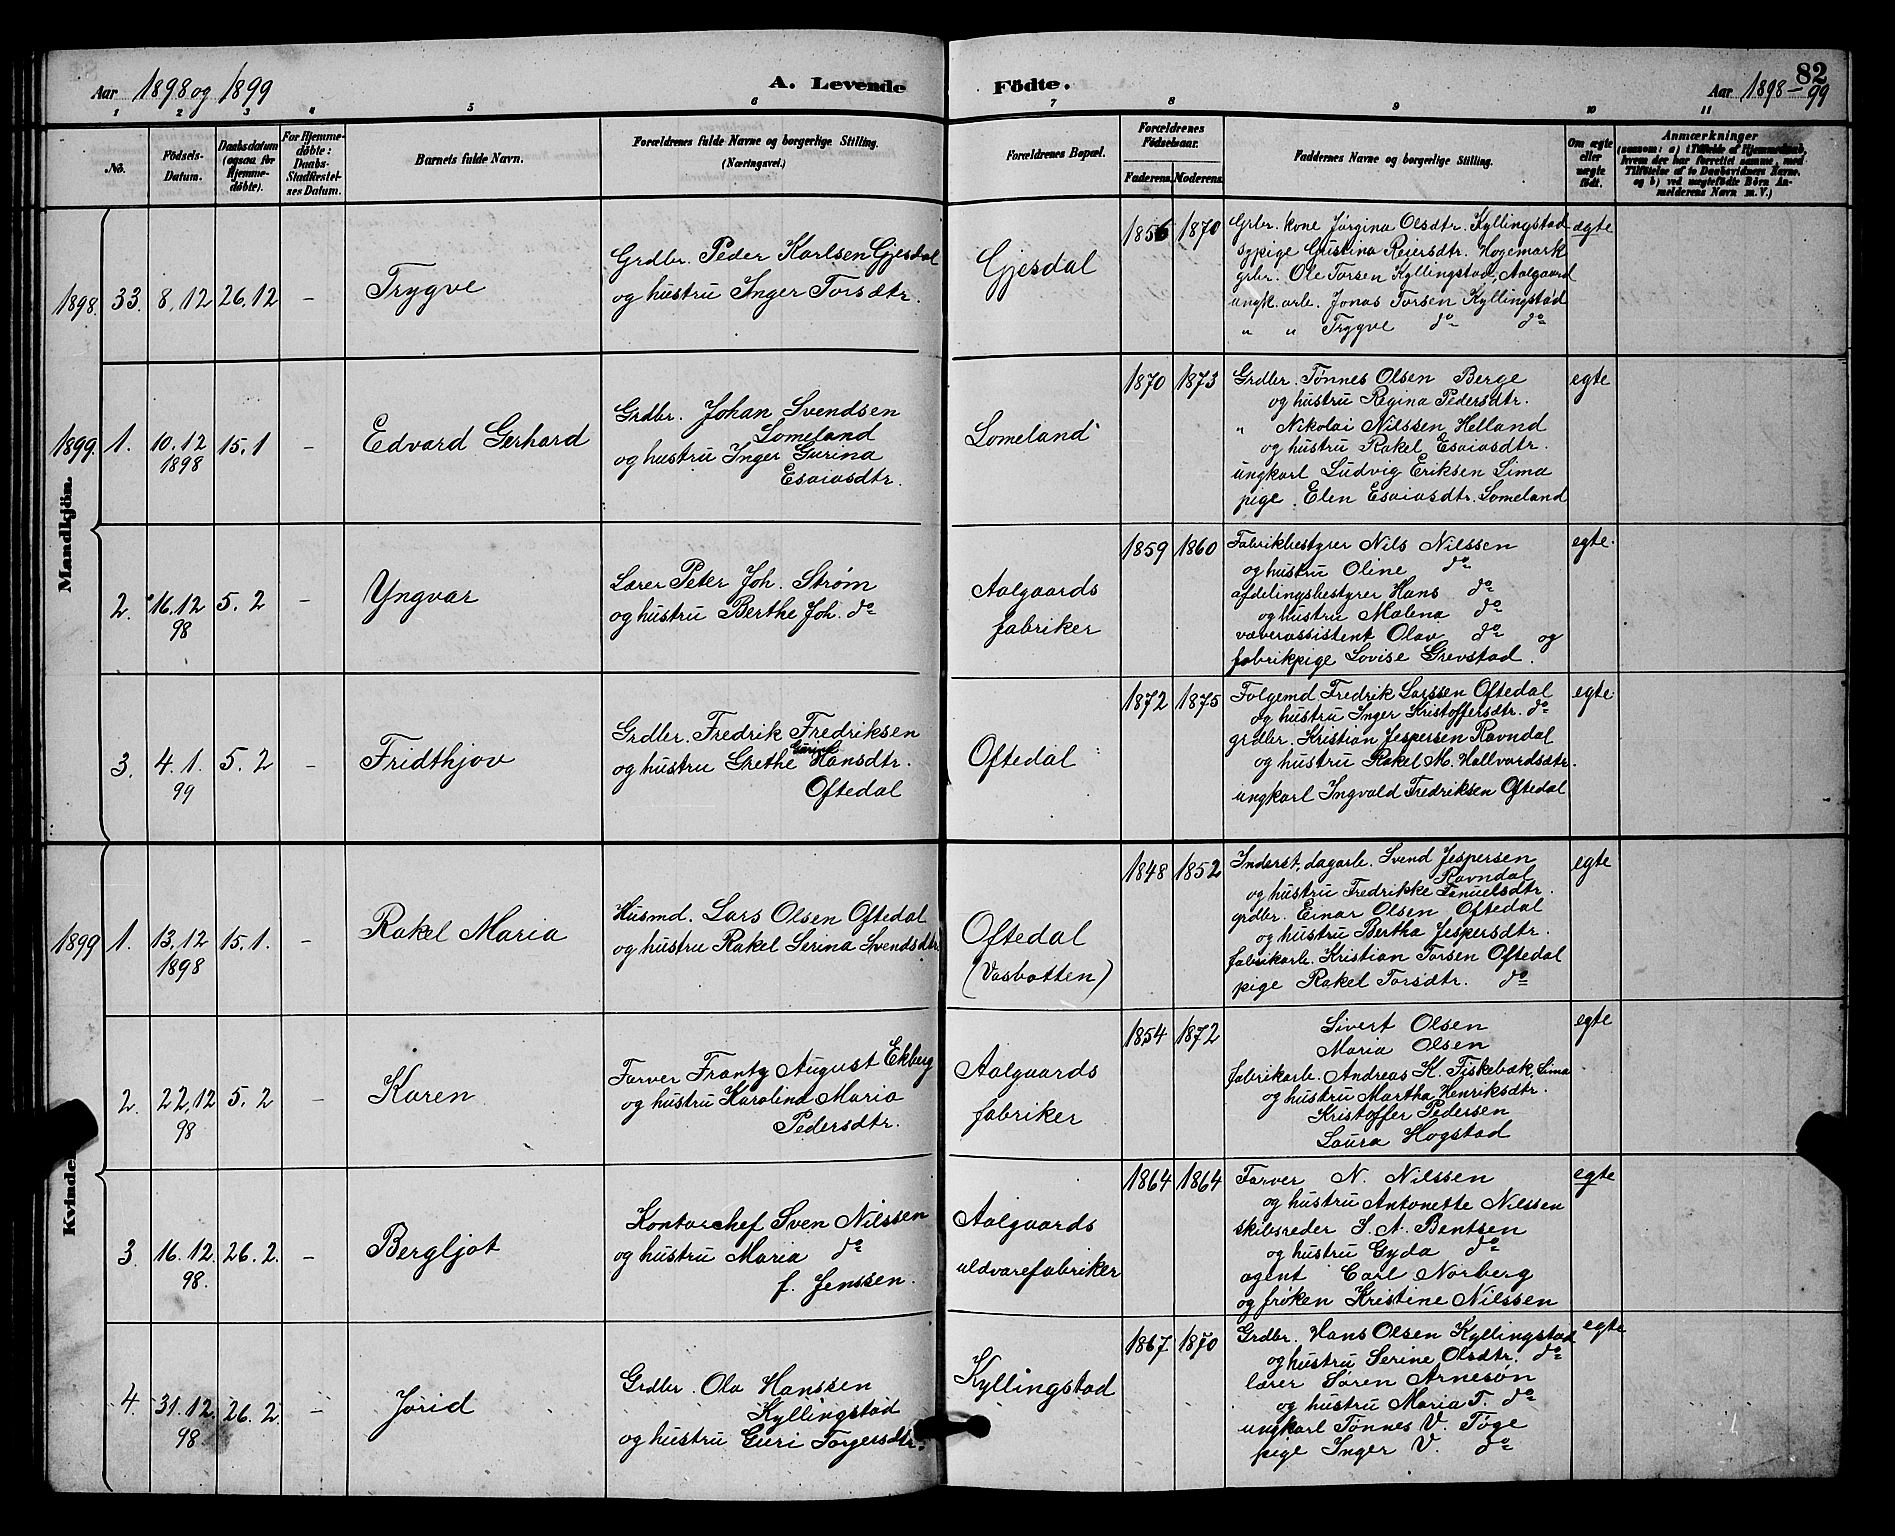 Aar 1898 og 1899
A. Levende Födte.
Aar 1898–99
82
1 2 3 4 5 6 7 8 9 10 11
No.
Födsels-Datum.
Daabsdatum (ogsaa for Hjemme-döbte).
For Hjemme-döbte: Daabs-Stadfæstel-ses Datum.
Barnets fulde Navn.
Forældrenes fulde Navne og borgerlige Stilling. (Næringsvei.)
Forældrenes Bopæl.
Forældrenes Födselsaar.
Faderens. Moderens.
Faddernes Navne og borgerlige Stilling.
Om ægte eller uægte födt.
Anmærkninger
(saasom: a) i Tilfælde af Hjemmedaab, hvem der har forrettet samme, med Tilföielse af to Daabsvidners Navne, og b) ved uægtefödte Börn An-melderens Navn m. V.)
Mandkjön.
1898. 33. 8,12 26.12 – Trygve
Grdbr. Peder Karlsen Gjesdal
og hustru Inger Torsdtr.
Gjesdal
1856 1870
Grbr. kone Jørgina Olsdtr. Kyllingstad
sypige Gustina Reiersdtr. Hogemark
grbr. Ole Torsen Kyllingstad, Aalgaard
ungk. arb. Jonas Torsen Kyllingstad
" " Trygve do do
ægte
1899. 1. 10.12 1898 15.1 – Edvard Gerhard
Grdbr. Johan Svendsen
Lomeland
og hustru Inger Gurina
Esaiasdtr.
Lomeland
1870 1873
Grdbr. Tønnes Olsen Berge
og hustru Regina Pedersdtr.
" Nikolai Nilssen Helland
og hustru Rakel Esaiasdtr.
ungkarl Ludvig Eriksen Lima
pige Elen Esaiasdtr. Lomeland
egte
2. 16.12 98 5.2 – Yngvar
Lærer Peter Joh. Strøm
og hustru Berthe Joh. do
Aalgaards
fabriker
1859 1860
Fabrikbestyrer Nils Nilssen
og hustru Oline do
afdelingsbestyrer Hans do
og hustru Malena do
væverassistent Olav do og
fabrikpige Lovise Grevstad.
egte.
3. 4.1. 99 5.2 – Fridthjov
Grdbr. Fredrik Fredriksen
og hustru Grethe Gurine Hansdtr.
Oftedal
Oftedal
1872 1875
Folgemd Fredrik Larssen Oftedal
og hustru Inger Kristoffersdtr. do
grdbr. Kristian Jespersen Ravndal
og hustru Rakel M. Hallvardsdtr.
ungkarl Ingvald Fredriksen Oftedal
egte
Kvinde
1899 1. 13.12 1898 15.1. – Rakel Maria
Husmd. Lars Olsen Oftedal
og hustru Rakel Serina Svendsdtr
Oftedal
(Vasbotten)
1848 1852
Inderst, dagarb. Svend Jespersen
Ravndal
og hustru Fredrikke Tenuelsdtr.
grdbr. Einar Olsen Oftedal
og hustru Bertha Jespersdtr.
fabrikarb. Kristian Torsen Oftedal
pige Rakel Torsdtr. do
egte
2. 22,12 98 5.2 – Karen
Farver Frantz August Ekberg
og hustru Karolina Maria
Pedersdtr.
Aalgaards
fabriker
1854 1872
Sivert Olsen
Maria Olsen
fabrikarb. Andreas K. Fiskebæk, Lima
og hustru Martha Henriksdtr.
Kristoffer Pedersen
Laura Hogstad
egte
3. 16.12. 98. 26.2. – Bergljot
Kontorchef Sven Nilssen
og hustru Maria do
f. Jenssen.
Aalgaards
uldvarefabriker
1864 1864
Farver N. Nilssen
og hustru Antonette Nilssen
skibsreder S. A. Bentsen
og hustru Gyda do
agent Carl Norberg
og frøken Kristine Nilssen
egte
4. 31.12. 98 26.2. – Jorid
Grdbr. Ola Hanssen
Kyllingstad
og hustru Guri Torgersdtr.
Kyllingstad
1867 1870
Grdbr. Hans Olsen Kyllingstad
og hustru Serine Olsdtr. do
lærer Søren Arneson
og hustru Maria T. do
ungkarl Tønnes V. Tøge
pige Inger V. do
egte